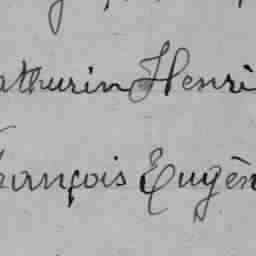 athurin Henri
François Eugèn